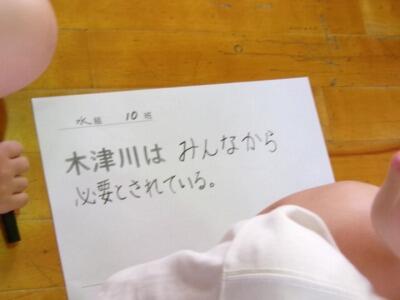 水組 10班
木津川は みんなから
必要とされている。